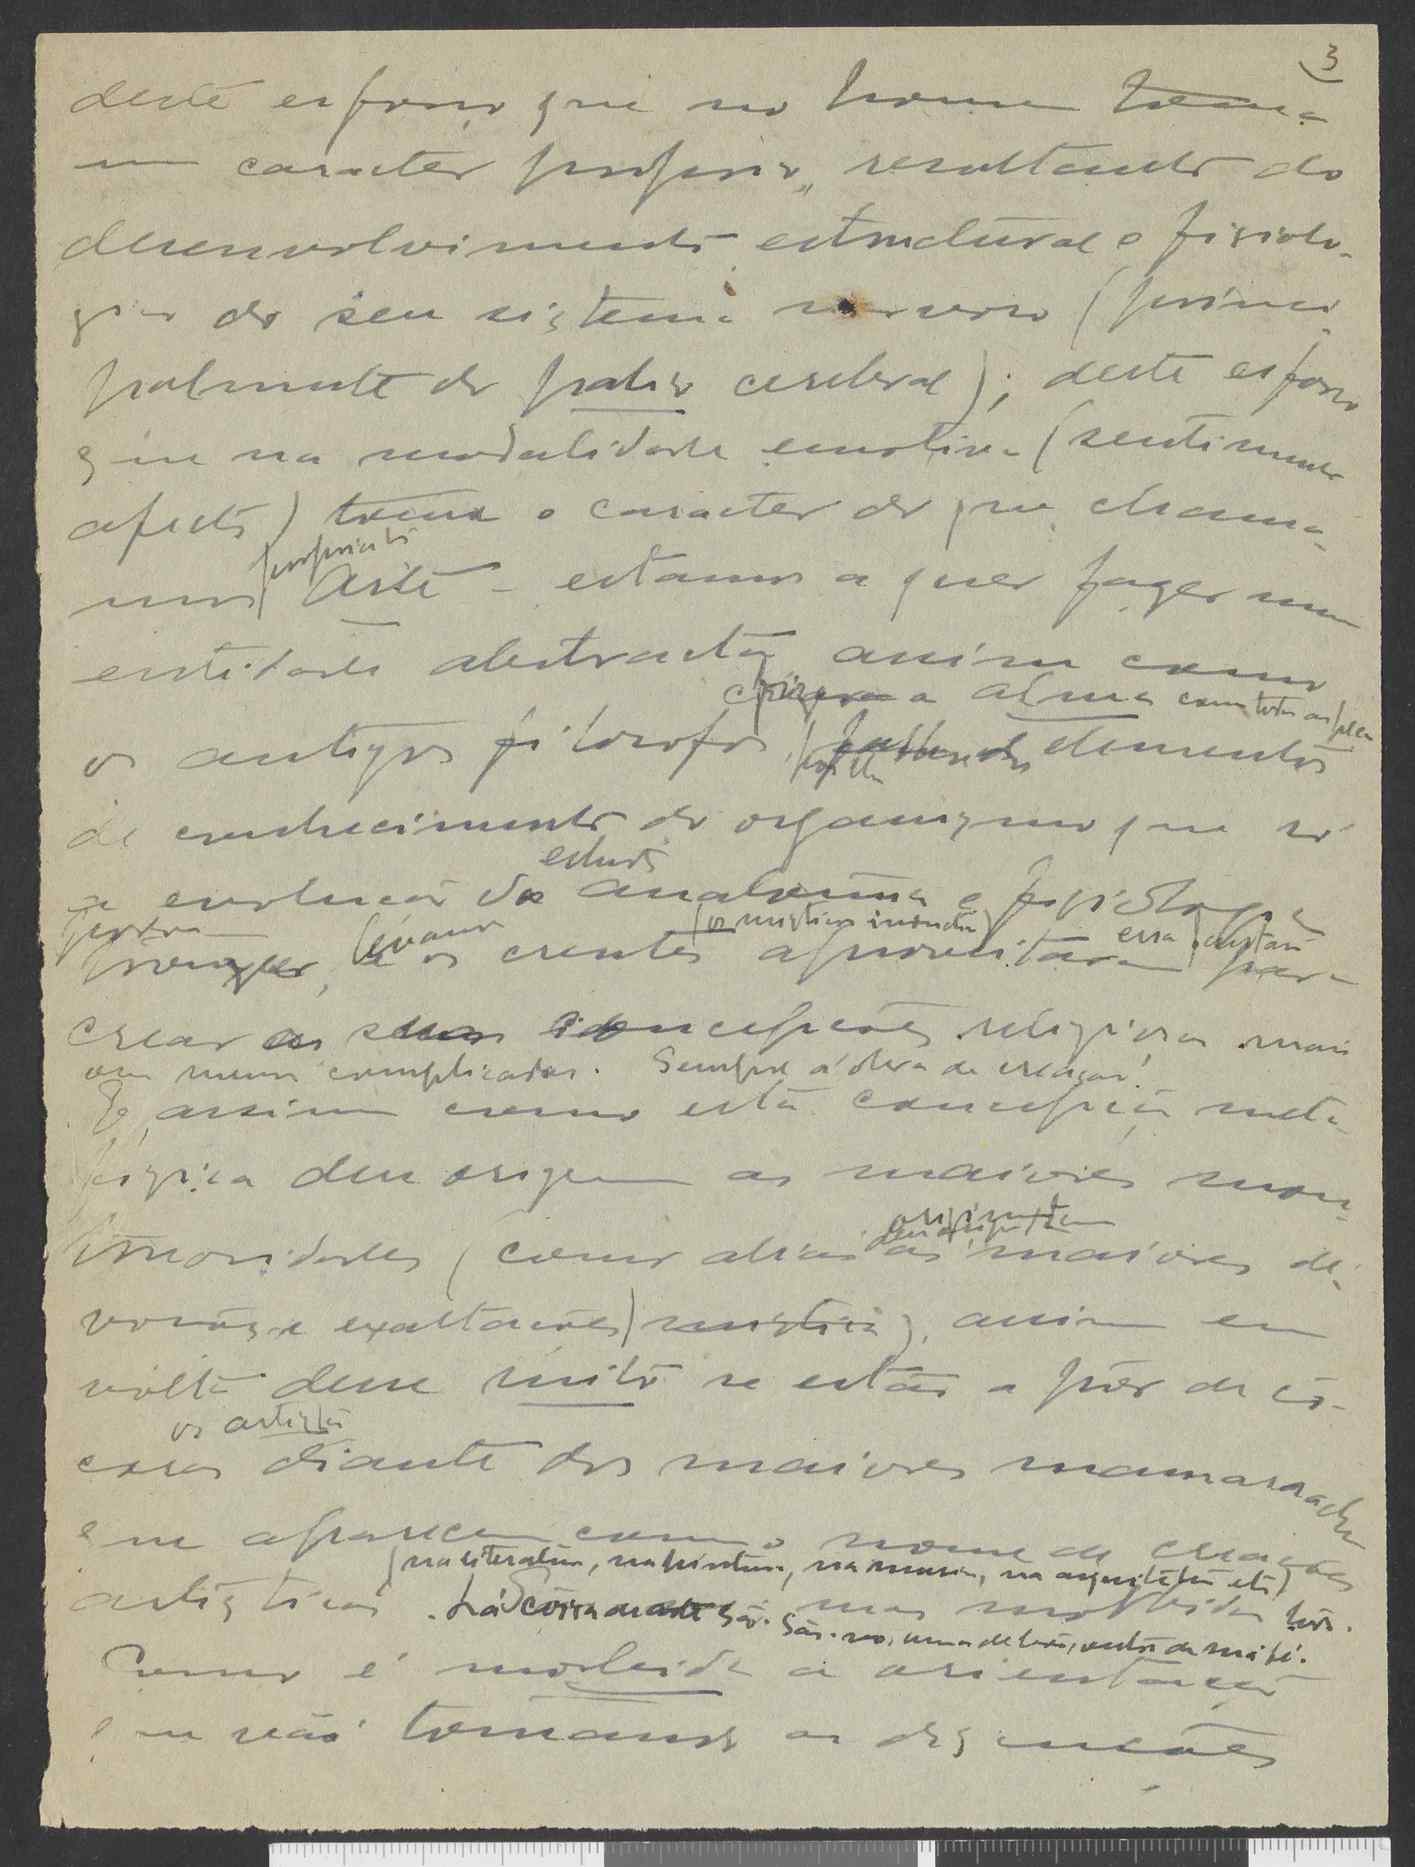 3
deste esforço que no homem toma
um caracter proprio, resultante do
desenvolvimento estructural e fisiolo-
gico do seu sistema nervoso (princi-
palmente do palio cerebral); deste esforço
que na modalidade emotiva (sentimento
afecto) toma o caracter do que chama-
propriamente
mos Arte – estamos a querer fazer uma
entidade abstracta, assim como
a alma com todas as
os antigos filosofos elementos
de conhecimento do organismo que só
estudo
a evolução da anatomia e fisiologia
os misticos essa
os crentes aproveitaram para
crear as suas concepções religiosas mais
ou menos complicadas. Sempre a obra da creação!
E, assim como esta concepção meta-
fizica deu origem as maiores mons-
truosidades (como alias as maiores de-
voções e exaltações) assim em
volta desse mito se estão a pôr de co-
os artistas
coras diante dos maiores mamarrachos
que aparecem com o nome de creações
(na literatura, na pintura, na musica, na arquitetura etc)
artisticas. mas morbidas
Como é morbida a orientação
que vão tomando as